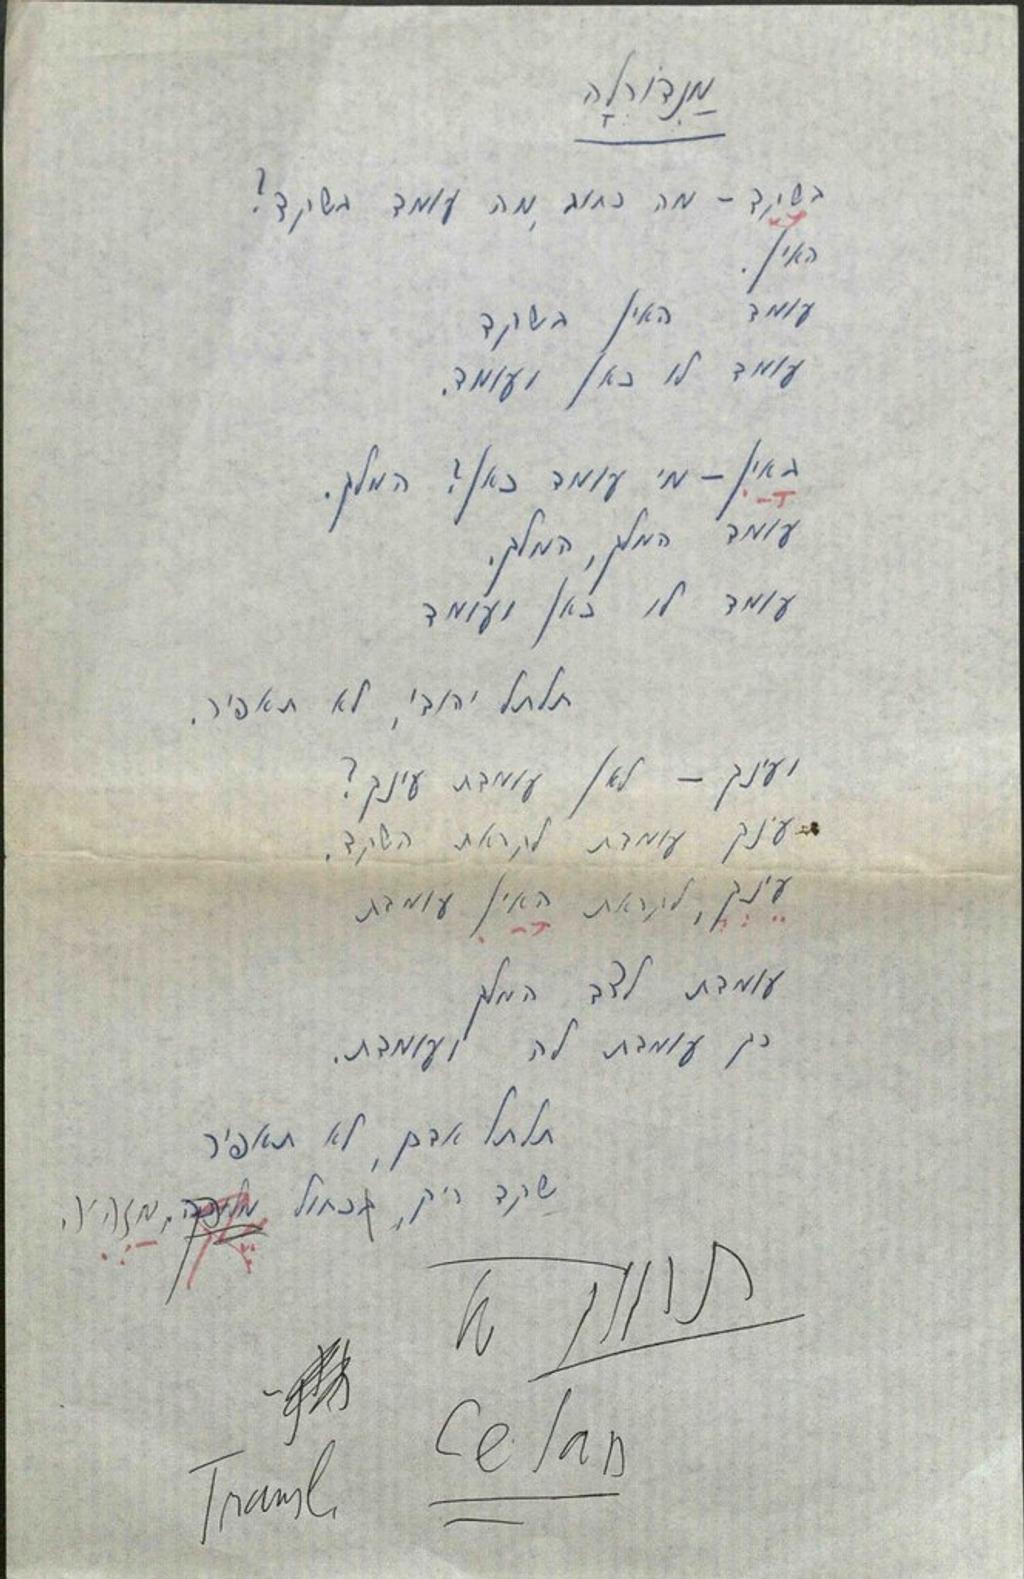 מַנְדּוֹרְלָה
בשקד – מה נמצא, מה עומד בשקד?
האין.
עומד האין בשקד
עומד לו כאן ועומד.
באין – מי עומד כאן? המלך.
עומד המלך, המלך.
עומד לו כאן ועומד
תלתל יהודי, לא תאפיר.
ועינך – לאן עומדת עינך?
עינך עומדת לקראת השקד.
עינך, לקראת האין עומדת
עומדת לצד המלך
כך עומדת לה ועומדת.
תלתל אדם, לא תאפיר
שקד ריק, בכחול
Celan
Transl.